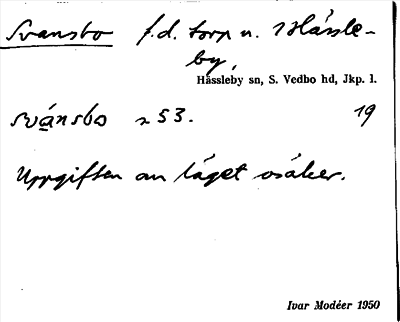 Svansbo f.d. torp u. Hässle-
by.
Hässleby sn, S. Vedbo hd, Jkp. l.
svánsbo s 53. 19
Uppgiften om läget osäker.
Ivar Modéer 1950